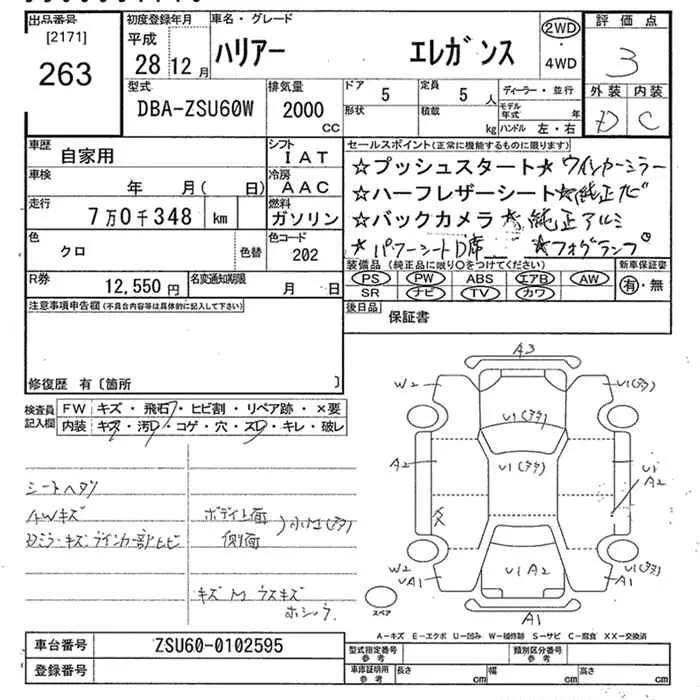 出品番号 初度登録年月 車名・グレード 評価点
[2171] 平成 ハリアー エレガンス 2WD
263 28年12月 ・4WD 3
型式 排気量 ドア 定員 ディーラー・並行 外装 内装
DBA-ZSU60W 2000 CC 5 5人 D C
形状 積載 kg モデル年式 年 ハンドル 左・右
車歴 自家用 シフト IAT セールスポイント(正常に機能するものに限ります)
車検 年 月( 日) 冷房 AAC ☆プッシュスタート☆ウインカーミラー
走行 7万0千348 km 燃料 ガソリン ☆ハーフレザーシート☆純正ナビ
色 クロ 色替 色コード 202 ☆バックカメラ ☆純正アルミ
☆パワーシートD席 ☆フォグランプ
R券 12,550円 名変通知期限 月 日 装備品(純正品に限り○をつけてください) 新車保証書
PS PW ABS エアB AW 有・無
SR ナビ TV カワ
注意事項申告欄(不具合内容等は具体的に記入して下さい) 後日品 保証書
修復歴 有〔箇所 〕
検査員記入欄 FW キズ・飛石・ヒビ割・リペア跡・×要
内装 キズ・汚レ・コゲ・穴・スレ・キレ・破レ
シートヘタリ
AWキズ ボディ上面
ミラーキズ ウインカー部ヒビ 側面 小凹(多)
キズ
A3
W2 U1(多)
U1(多)
A2 U1(多) U1
A2
W2 W2
UA1 U1 A2 A1
スペア A1
A−キズ E−エクボ U−凹み W−補修跡 S−サビ C−腐食 XX−交換済
車台番号 ZSU60-0102595 型式指定番号 参考 類別区分番号 参考
登録番号 車庫証明用 参考 長さ cm 幅 cm 高さ cm